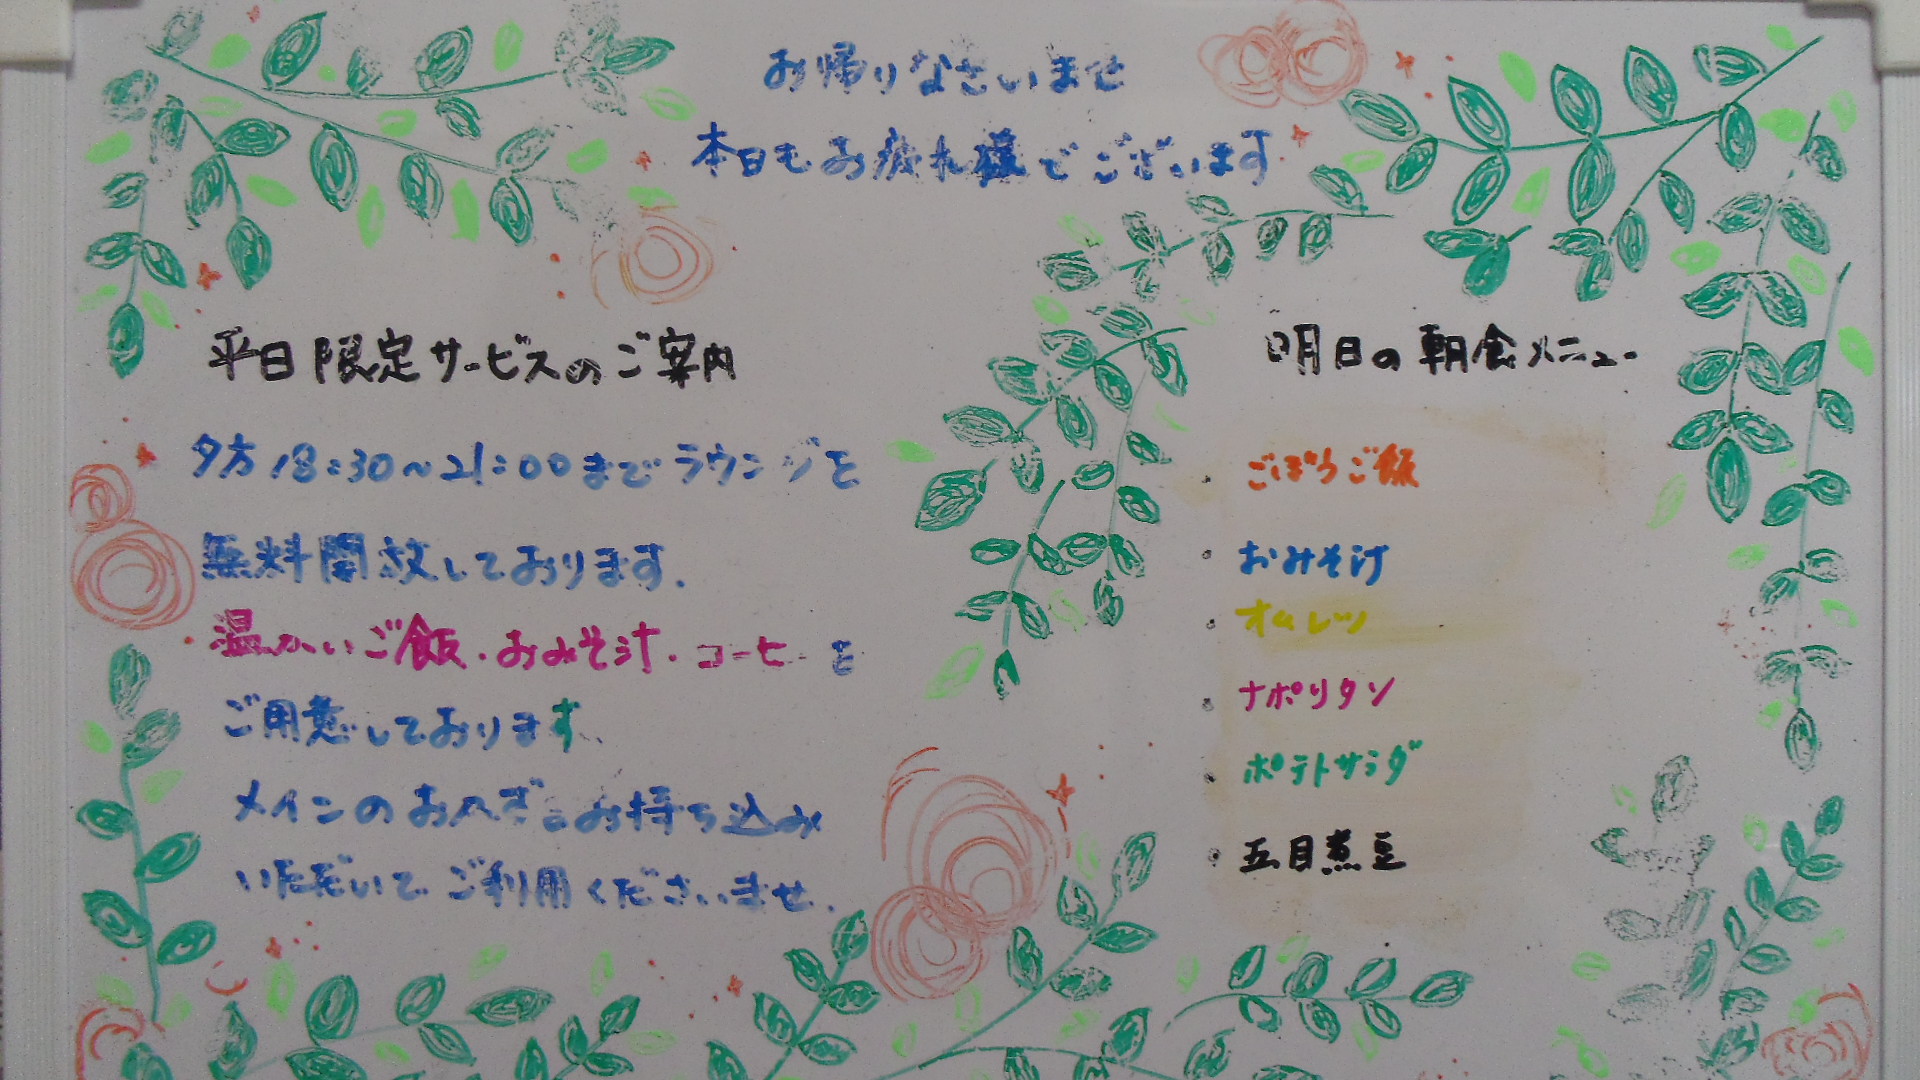 お帰りなさいませ
本日もお疲れ様でございます
平日限定サービスのご案内
夕方18:30~21:00までラウンジを
無料開放しております.
温かいご飯・おみそ汁・コーヒーを
ご用意しております、
メインのおかずをお持ち込み
いただいてご利用くださいませ.
明日の朝食メニュー
・ごぼうご飯
・おみそ汁
・オムレツ
・ナポリタン
・ポテトサラダ
・五目煮豆